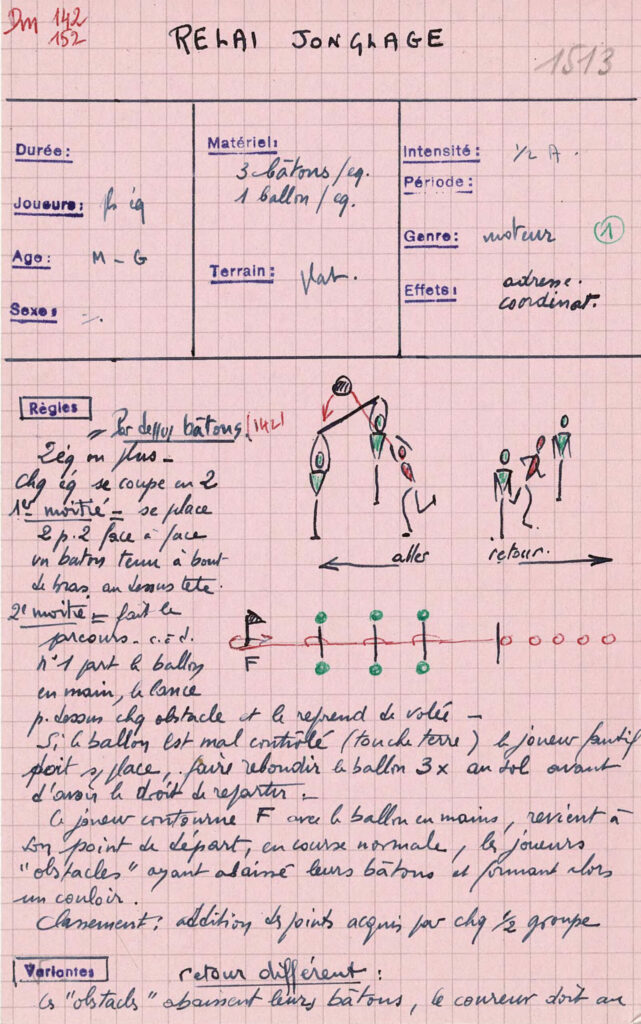 Dm 142
152
RELAI JONGLAGE
1513
Durée:
Joueurs: pls ég
Age: M - G
Sexe:
Matériel:
3 bâtons/eq.
1 ballon/eq.
Terrain: plat.
Intensité: 1/2 A.
Période:
Genre: moteur 1
Effets: adresse.
coordinat.
Règles
= Par dessus bâtons (142)
2 ég ou plus -
chq ég se coupe en 2
1e moitié = se place
2 p. 2 face à face
un baton tenu à bout
de bras au dessus tete.
2e moitié = fait le
parcours - c.à.d.
n°1 part le ballon
en main, le lance
p. dessus chq obstacle et le reprend de volée -
Si le ballon est mal contrôlé (touche terre) le joueur fautif
doit s/ place, faire rebondir le ballon 3x au sol avant
d'avoir le droit de repartir -
Ce joueur contourne F avec le ballon en mains, revient à
son point de départ, en course normale, les joueurs
"obstacles" ayant abaissé leurs bâtons et formant alors
un couloir.
Classement: addition des points acquis par chq 1/2 groupe
aller
retour.
F
Variantes
retour différent:
les "obstacles" abaissent leurs bâtons, le coureur doit au